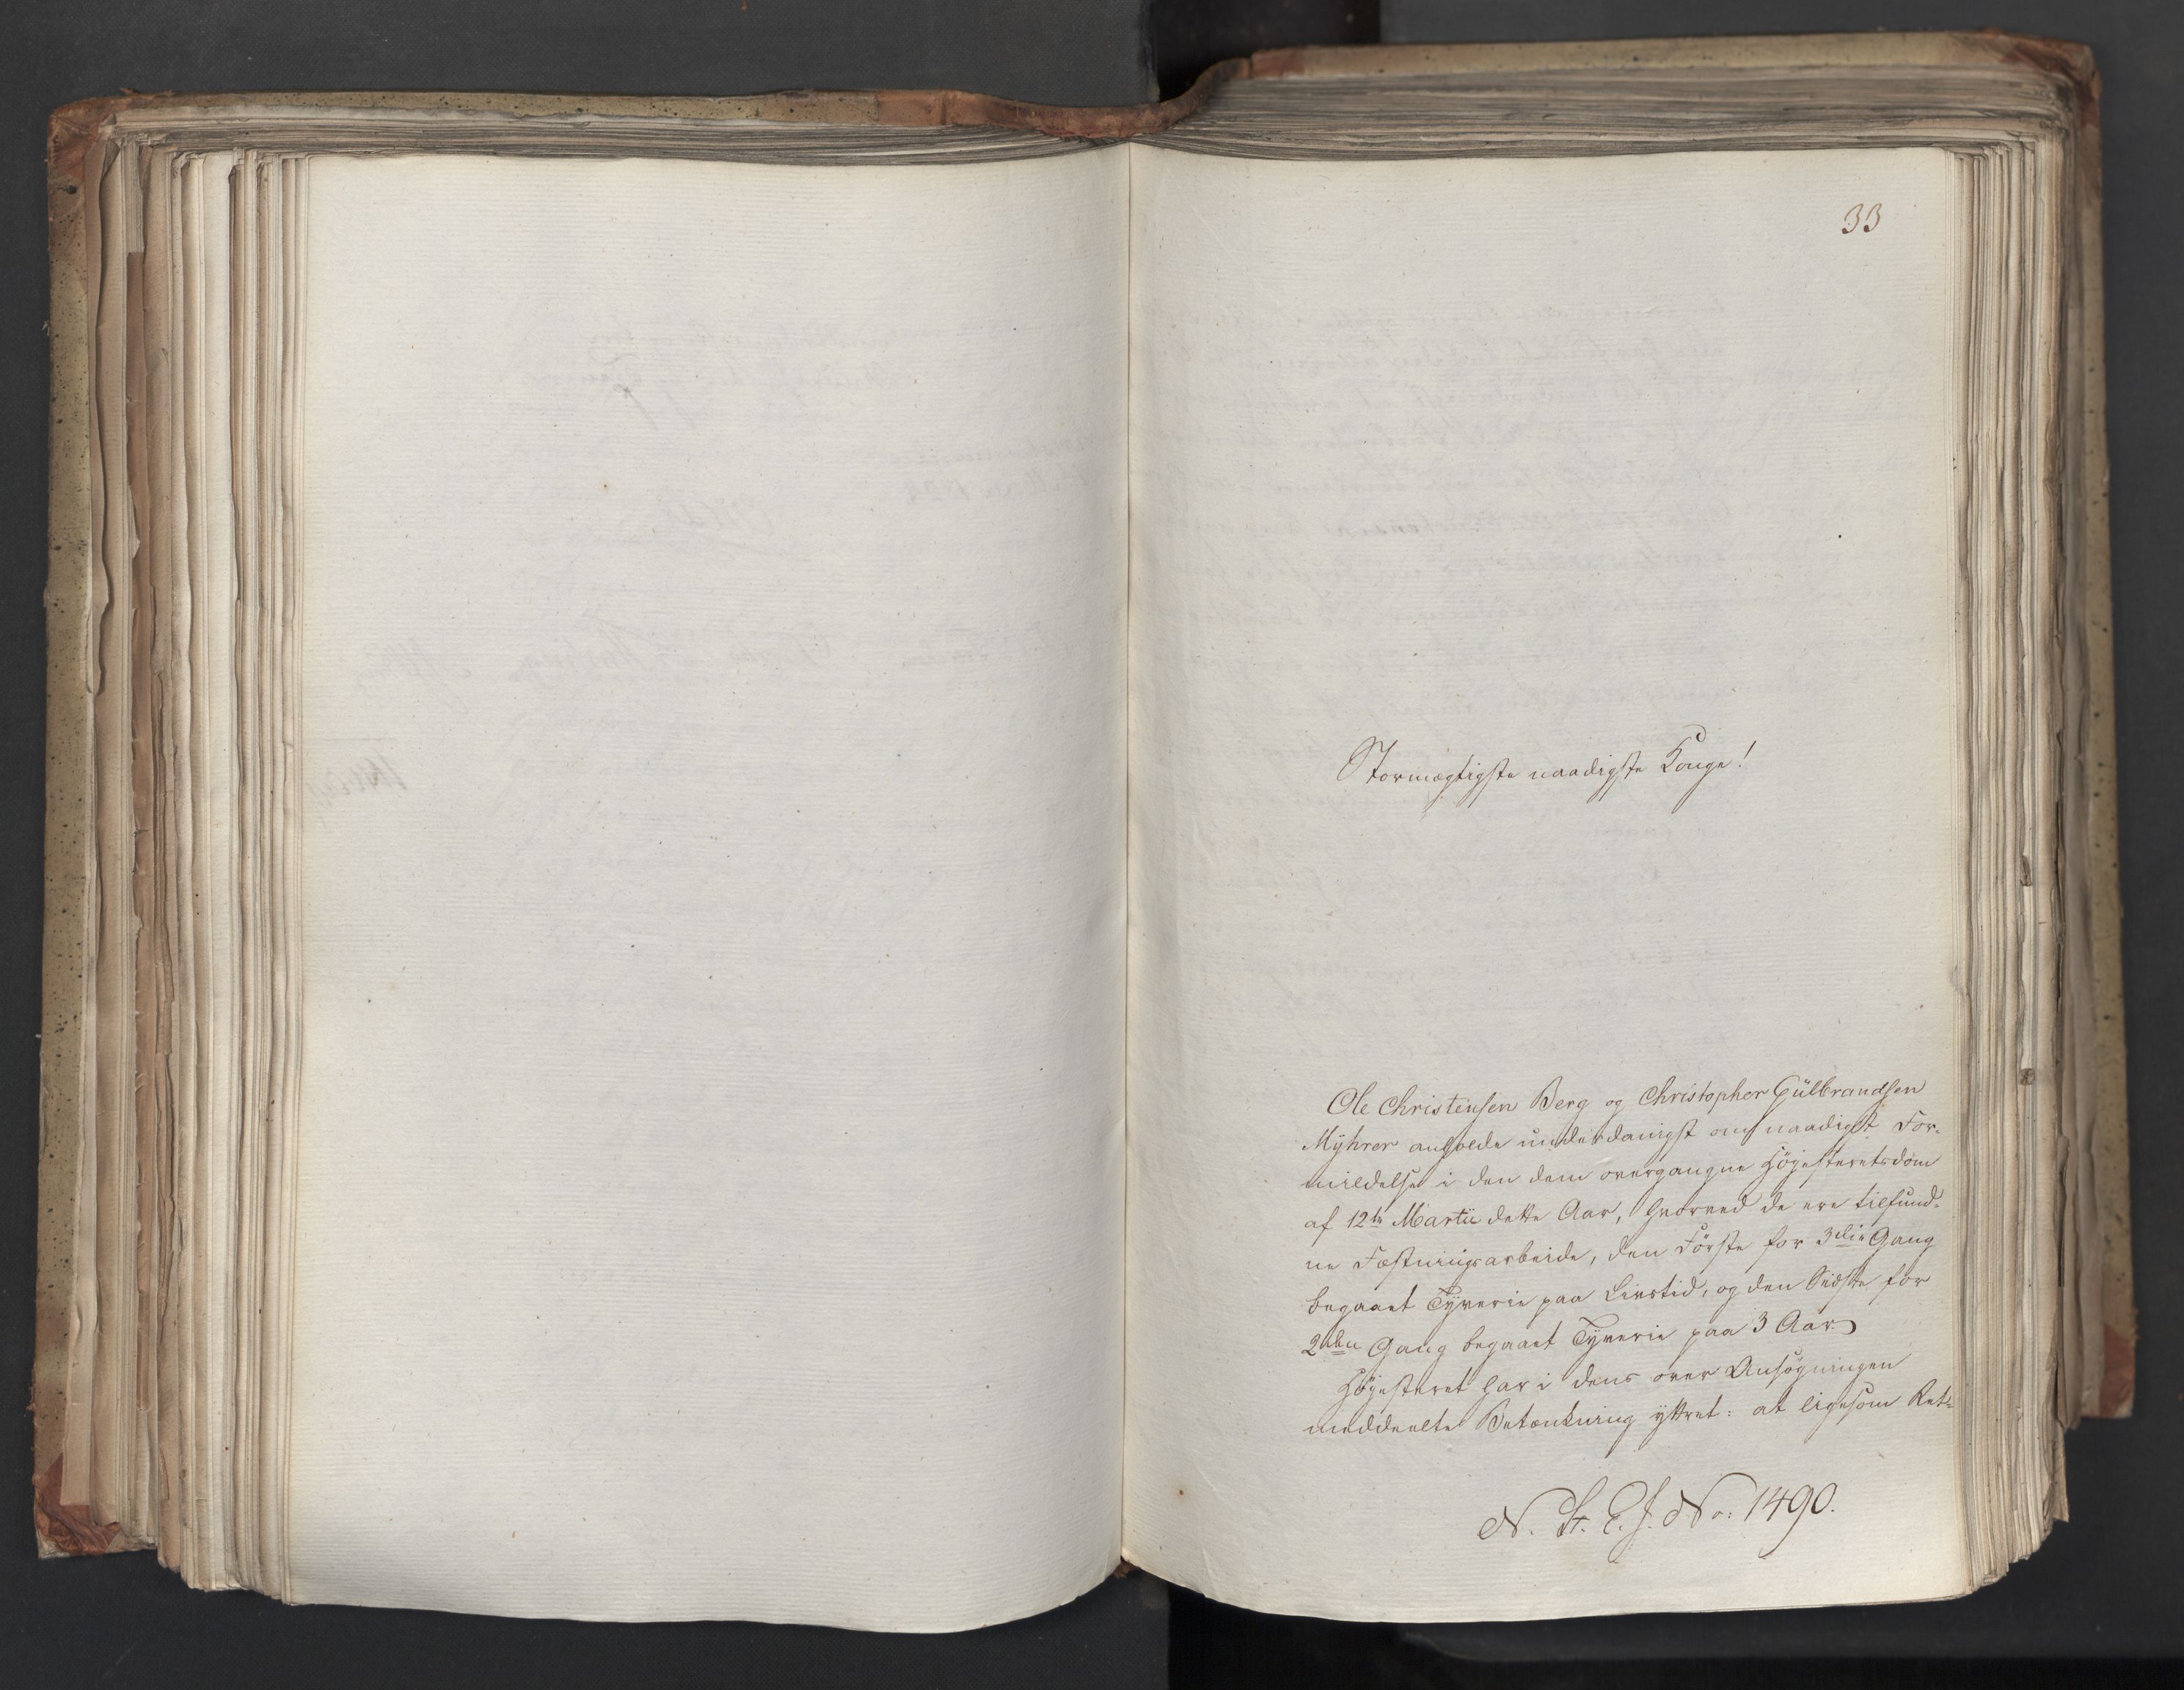 33
Stormægtigste naadigste Konge!
Ole Christensen Berg og Christopher Gülbrandsen
Myhrer ansøede underdanigst om naadigst For-
mildelse i den dem overgangne Höjesteretsdom
af 12te Martii dette Aar, hvorved de ere tilfund-
ne Fæstningsarbeide, den Förste for 3die Gang
begaaet Tyverie paa Livstid, og den Sidste for
2den Gang begaaet Tyverie paa 3 Aar.
Höjesteret har i dens over Ansögningen
meddeelte Betænkning yttret: at ligesom Ret-
N. St. E. J. No: 1490.